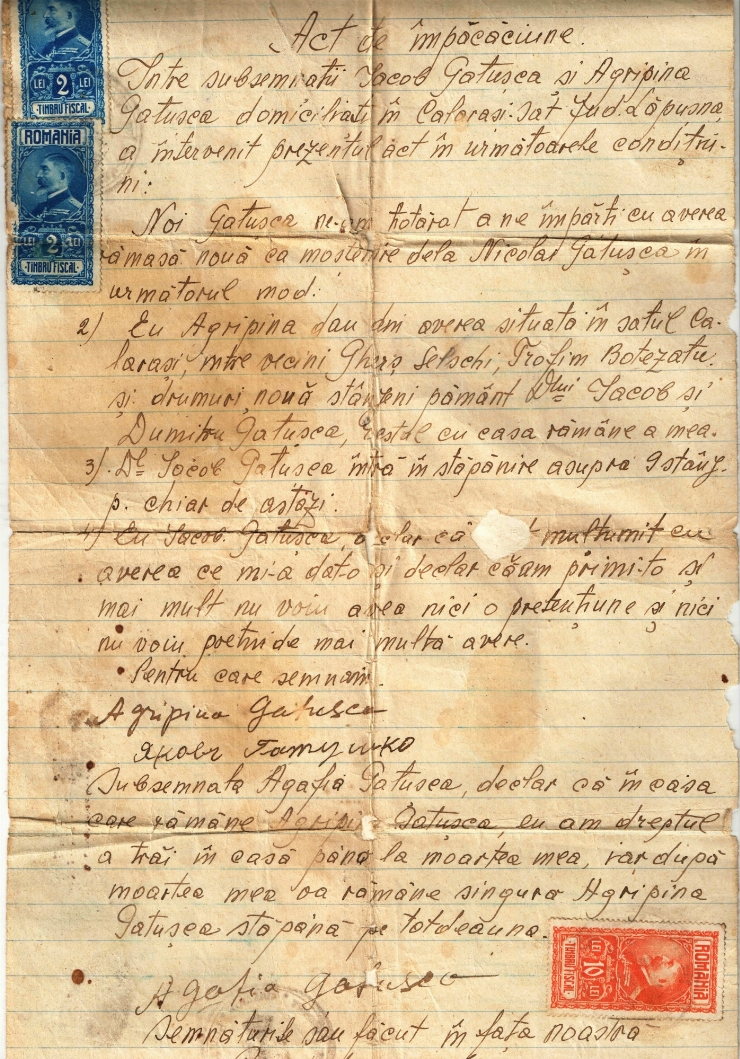 LEI 2 LEI
TIMBRU FISCAL
ROMANIA
LEI 2 LEI
TIMBRU FISCAL
Act de împăcăciune.
Intre subsemnatii Iacob Gatușca si Agripina
Gatușca domiciliati în Calarasi-Sat Jud. Lăpusna
a intervenit prezentul act în următoarele condițiu-
ni:
Noi Gatușca ne-am hotărat a ne împărti cu averea
rămasă nouă ca mostenire dela Nicolai Gatușca în
următorul mod:
2) Eu Agripina dau din averea situată în satul Ca-
larasi, intre vecini Gherș Selschi, Trofim Botezatu
și drumuri, nouă stânjeni pământ Dlui Iacob și
Dumitru Gatusca, restul cu casa rămâne a mea.
3). Dl Iacob Gatusca intră în stăpânire asupra 9 stânj.
p. chiar de astăzi.
4) Eu Iacob Gatusca, declar că multumit cu
averea ce mi-a dat-o și declar că am primit-o și
mai mult nu voiu avea nici o pretențiune și nici
nu voiu pretinde mai multă avere.
Pentru care semnăm.
Agripina Gatusca
Яковъ
Subsemnata Agafia Gatusca, declar că în casa
care rămâne Agripina Gatusca, eu am dreptul
a trăi în casă până la moartea mea, iar după
moartea mea va rămâne singura Agripina
Gatușca stăpână pe totdeauna.
ROMANIA
10 LEI
TIMBRU FISCAL
Agafia Gatusca
Semnăturile sau făcut în fața noastră